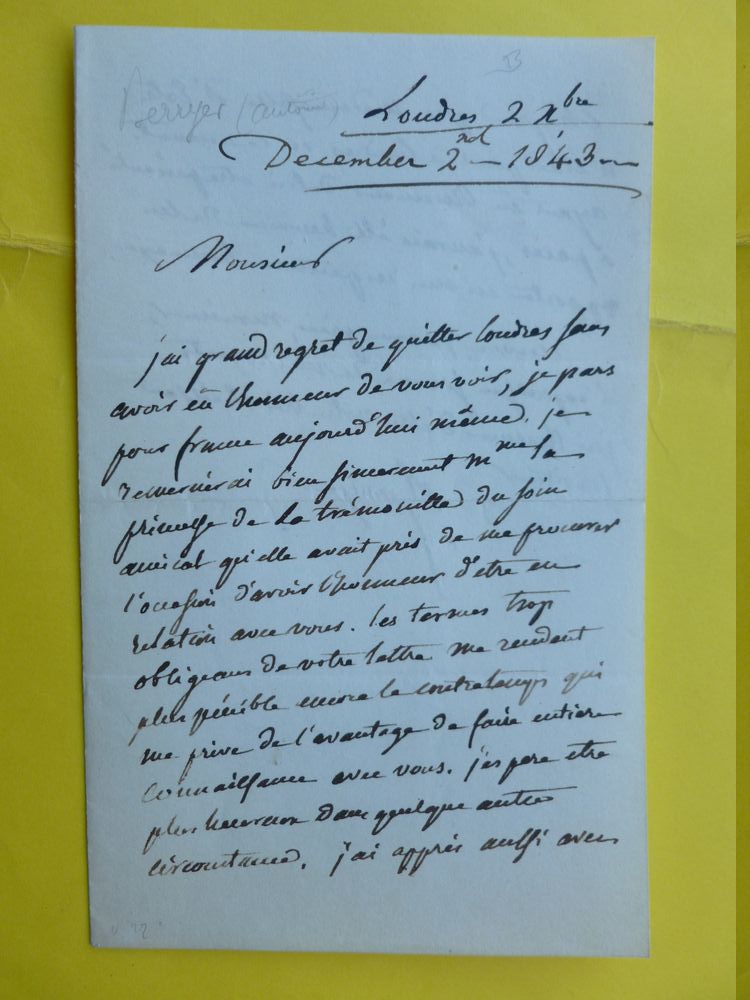 Berryer (antoine)
B
Londres 2 Xbre
December 2nd 1843
Monsieur
j'ai grand regret de quitter londres sans
avoir eu l'honneur de vous voir, je pars
pour france aujourd'hui même. je
remercierai bien sincerement mme la
princesse de La trémouille du soin
amical qu'elle avait pris de me procurer
l'occasion d'avoir l'honneur d'etre en
relation avec vous. les termes trop
obligeans de votre lettre me rendent
plus pénible encore le contretemps qui
me prive de l'avantage de faire entiere
connaissance avec vous. j'espere etre
plus heureux dans quelque autre
circonstance. j'ai appris aussi avec